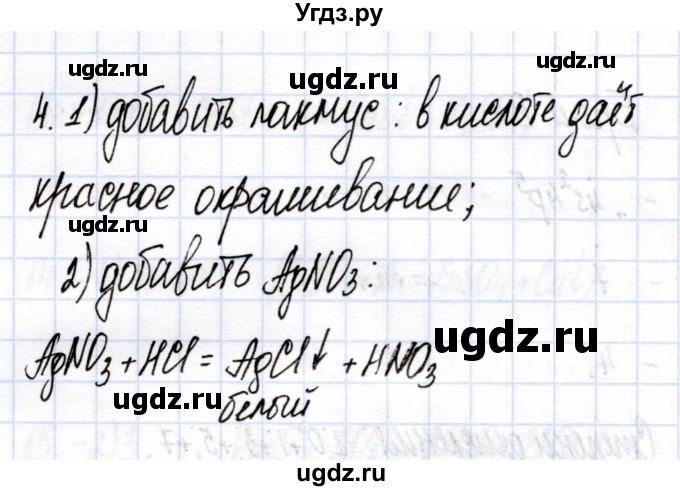 Угдз.ру
ugdz.ru ugdz.ru
ugdz.ru
4. 1) добавить лакмус: в кислоте даёт
красное окрашивание;
ugdz.ru
2) добавить AgNO3:
ugdz.ru
AgNO3 + HCl = AgCl↓ + HNO3
белый
ugdz.ru ugdz.ru
ugdz.ru ugdz.ru
ugdz.ru